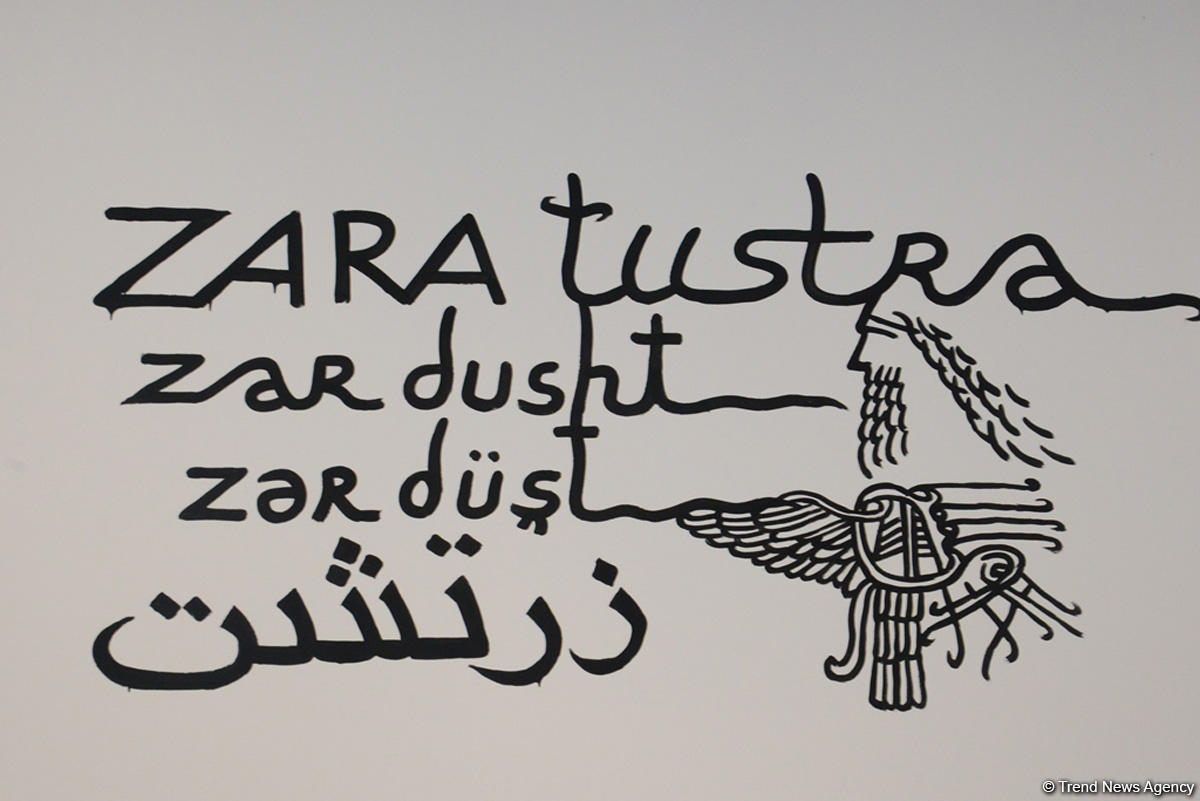 ZARA tustra
zar dusht
zər düşt
زرتشت
© Trend News Agency